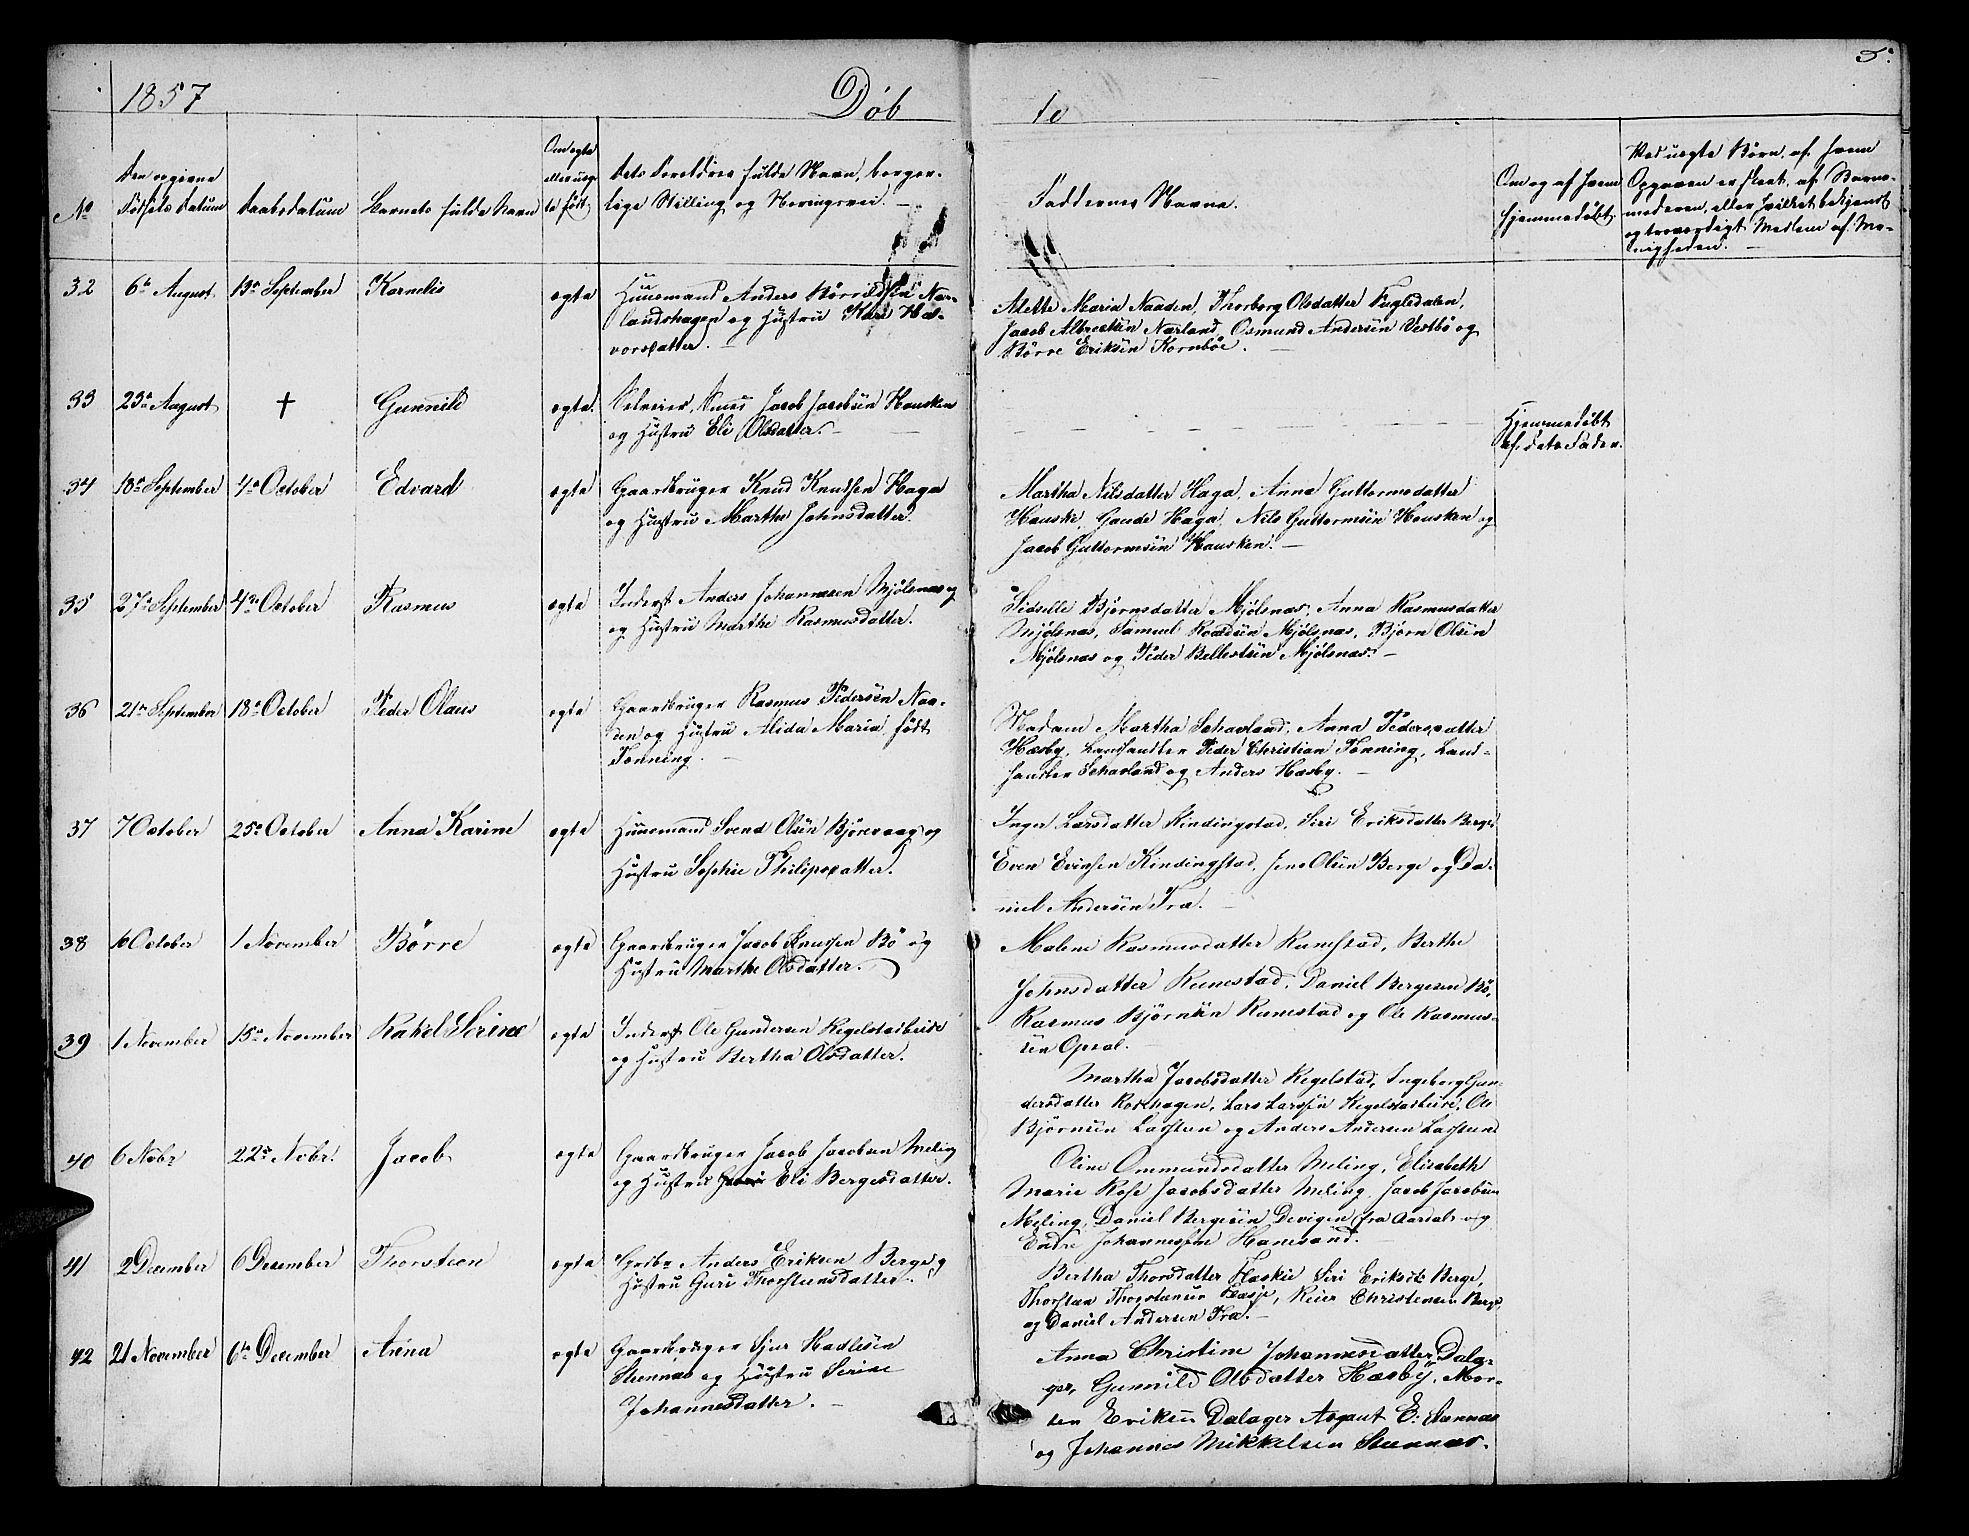 5.
1857
Döb
te
No
Den opgivne
Fødsels Datum
Daabsdatum
Barnets fulde Navn
Om ægte
eller uæg-
te født
Dets Foreldres fulde Navn, borger-
lige Stilling og Næringsvei. —
Faddernes Navne.
Om og af hvem
hjemmedøbt.
Ved uægte Børn, af hvem
Opgaven er skeet, af Barne-
moderen, eller hvilket bekjendt
og troværdigt Medlem af Me-
nigheden. —
32
6te August
13de September
Kornelis
ægte
Huusmand Anders Børrildsen Nær-
landshagen og Hustru Kari Ha-
vorsdatter. —
Mette Maria Naaden, Thorborg Olsdatter Fugledalen,
Jacob Albrectsen Nærland, Osmund Andersen Vestbø og
Börre Eriksen Kornböe. —
33
23de August
†
Gunnild
ægte.
Selveier, Smed Jacob Jacobsen Hausken
og Hustru Eli Olsdatter. —
Hjemmedöbt
af dets Fader.
34
18de September
4de October
Edvard
ægte
Gaardbruger Knud Knudsen Haga
og Hustru Marthe Johnsdatter.
Martha Nilsdatter Haga, Anna Guttormsdatter
Hauske, Gaude Haga, Nils Guttormsen Hausken og
Jacob Guttormsen Hausken. —
35
27de September
4de October
Rasmus
ægte
Inderst Anders Johannesen Mjölsnæs og
og Hustru Marthe Rasmusdatter.
Sidselle Björnsdatter Mjölsnæs, Anna Rasmusdatter
Mjölsnæs, Samuel Roaldsen Mjölsnæs, Björn Olsen
Mjölsnæs og Peder Ballestsen Mjölsnæs. —
36
21de September
18de October
Peder Olaus
ægte
Gaardbruger Rasmus Pedersen Naa-
den og Hustru Alida Maria född
Tönning. —
Madam Martha Schavland, Anna Pedersdatter
Hæsby, Landhandler Peder Christian Tönning, Land-
handler Schavland og Anders Hæsby. —
37
7 October
25de October
Anna Karine
ægte
Huusmand Svend Olsen Björnvaag og
Hustru Sophie Philipsdatter.
Inger Larsdatter Kindingstad, Siri Eriksdatter Berge
Even Evensen Kindingstad, Jens Olsen Berge og Da-
niel Andersen Fra. —
38
10 October
1 November
Börre
ægte
Gaardbruger Jacob Knudsen Bö og
Hustru Marthe Olsdatter.
Malene Rasmusdatter Runestad, Berthe
Johnsdatter Runestad, Daniel Bergesen Bö,
Rasmus Björnsen Runestad og Ole Rasmus-
sen Opsal. —
39
1 November
15de November
Rakel Serine
ægte
Inderst Ole Gundersen Regelstadbeide
og Hustru Bertha Olsdatter.
Martha Jacobsdatter Regelstad, Ingeborg Gun-
dersdatter Rosehagen, Lars Larsen Regelstadbeide, Ole
Björnsen Lassteen og Anders Andersen Lassteen
40
6 Nobr
22de Nobr.
Jacob
ægte
Gaardbruger Jacob Jacobsen Meling
og Hustru Eli Bergesdatter.
Oline Ommundsdatter Meling, Elisabeth
Marie Rose Jacobsdatter Meling, Jacob Jacobsen
Meling, Daniel Bergesen Devigen fra Aardal og
Endre Johannessen Hanesand. —
41
2 December
6 December
Thorsteen
ægte
Gaardbr Anders Eriksen Berge og
Hustru Guri Thorsteensdatter.
Bertha Thorsdatter Haskie Siri Eriksdt Berge,
Thorsten Thorstensen Haasje, Reier Christensen Berge,
og Daniel Andersen Fra. —
42
21 November
6te December
Anna
ægte
Gaardbruger Sjur Hadlesen
Steennæs og Hustru Serine
Johannesdatter. —
Anna Christine Johannesdatter Dala-
ger, Gunnild Olsdatter Hæsby, Mor-
ten Eriksen Dalager Asgaut E. Steennæs
og Johannes Mikkelsen Steennæs.